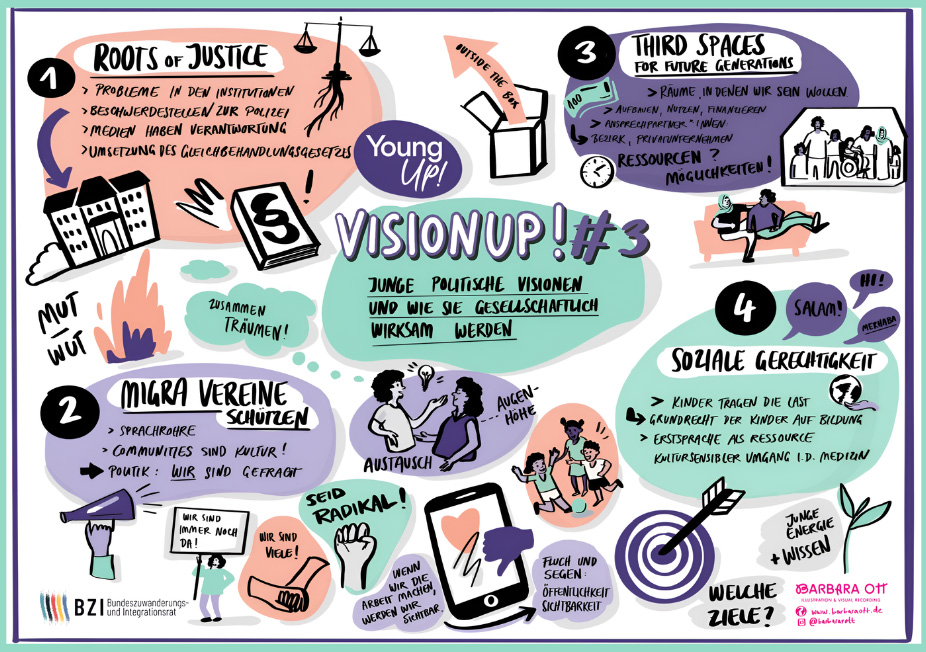 1
ROOTS OF JUSTICE
> PROBLEME IN DEN INSTITUTIONEN
> BESCHWERDESTELLEN ZUR POLIZEI
> MEDIEN HABEN VERANTWORTUNG
> UMSETZUNG DES GLEICHBEHANDLUNGSGESETZES
§
!
OUTSIDE THE BOX
Young
UP!
3
THIRD SPACES
FOR FUTURE GENERATIONS
100
> RÄUME, IN DENEN WIR SEIN WOLLEN.
> AUFBAUEN, NUTZEN, FINANZIEREN
> ANSPRECHPARTNER*INNEN
BEZIRK, PRIVATUNTERNEHMEN
RESSOURCEN?
MÖGLICHKEITEN!
VISIONUP! #3
JUNGE POLITISCHE VISIONEN
UND WIE SIE GESELLSCHAFTLICH
WIRKSAM WERDEN
MUT
WUT
ZUSAMMEN
TRÄUMEN!
2
MIGRA VEREINE
SCHÜTZEN
> SPRACHROHRE
> COMMUNITIES SIND KULTUR!
POLITIK: WIR SIND GEFRAGT
AUSTAUSCH
AUGEN-
HÖHE
4
SALAM!
HI!
MERHABA
SOZIALE GERECHTIGKEIT
> KINDER TRAGEN DIE LAST
GRUNDRECHT DER KINDER AUF BILDUNG
> ERSTSPRACHE ALS RESSOURCE
KULTURSENSIBLER UMGANG I.D. MEDIZIN
WIR SIND
IMMER NOCH
DA!
WIR SIND
VIELE!
SEID
RADIKAL!
WENN
WIR DIE
ARBEIT MACHEN,
WERDEN WIR
SICHTBAR.
FLUCH UND
SEGEN:
ÖFFENTLICHKEIT
SICHTBARKEIT
WELCHE
ZIELE?
JUNGE
ENERGIE
+ WISSEN
BZI Bundeszuwanderungs-
und Integrationsrat
BARBARA OTT
ILLUSTRATION & VISUAL RECORDING
www.barbaraott.de
@barbarott